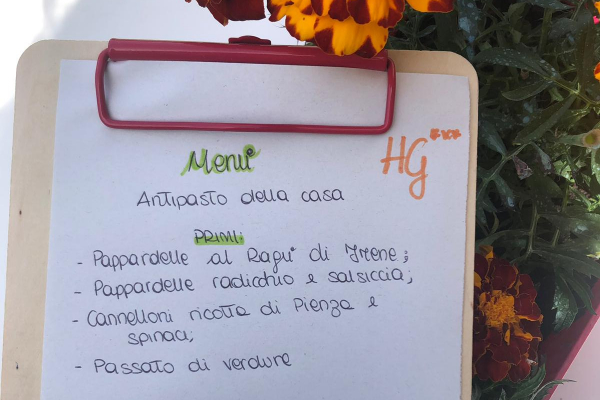 Menù
HG***
Antipasto della casa
PRIMI:
- Pappardelle al Ragù di Irene;
- Pappardelle radicchio e salsiccia;
- Cannelloni ricotta di Pienza e
spinaci;
- Passato di verdure